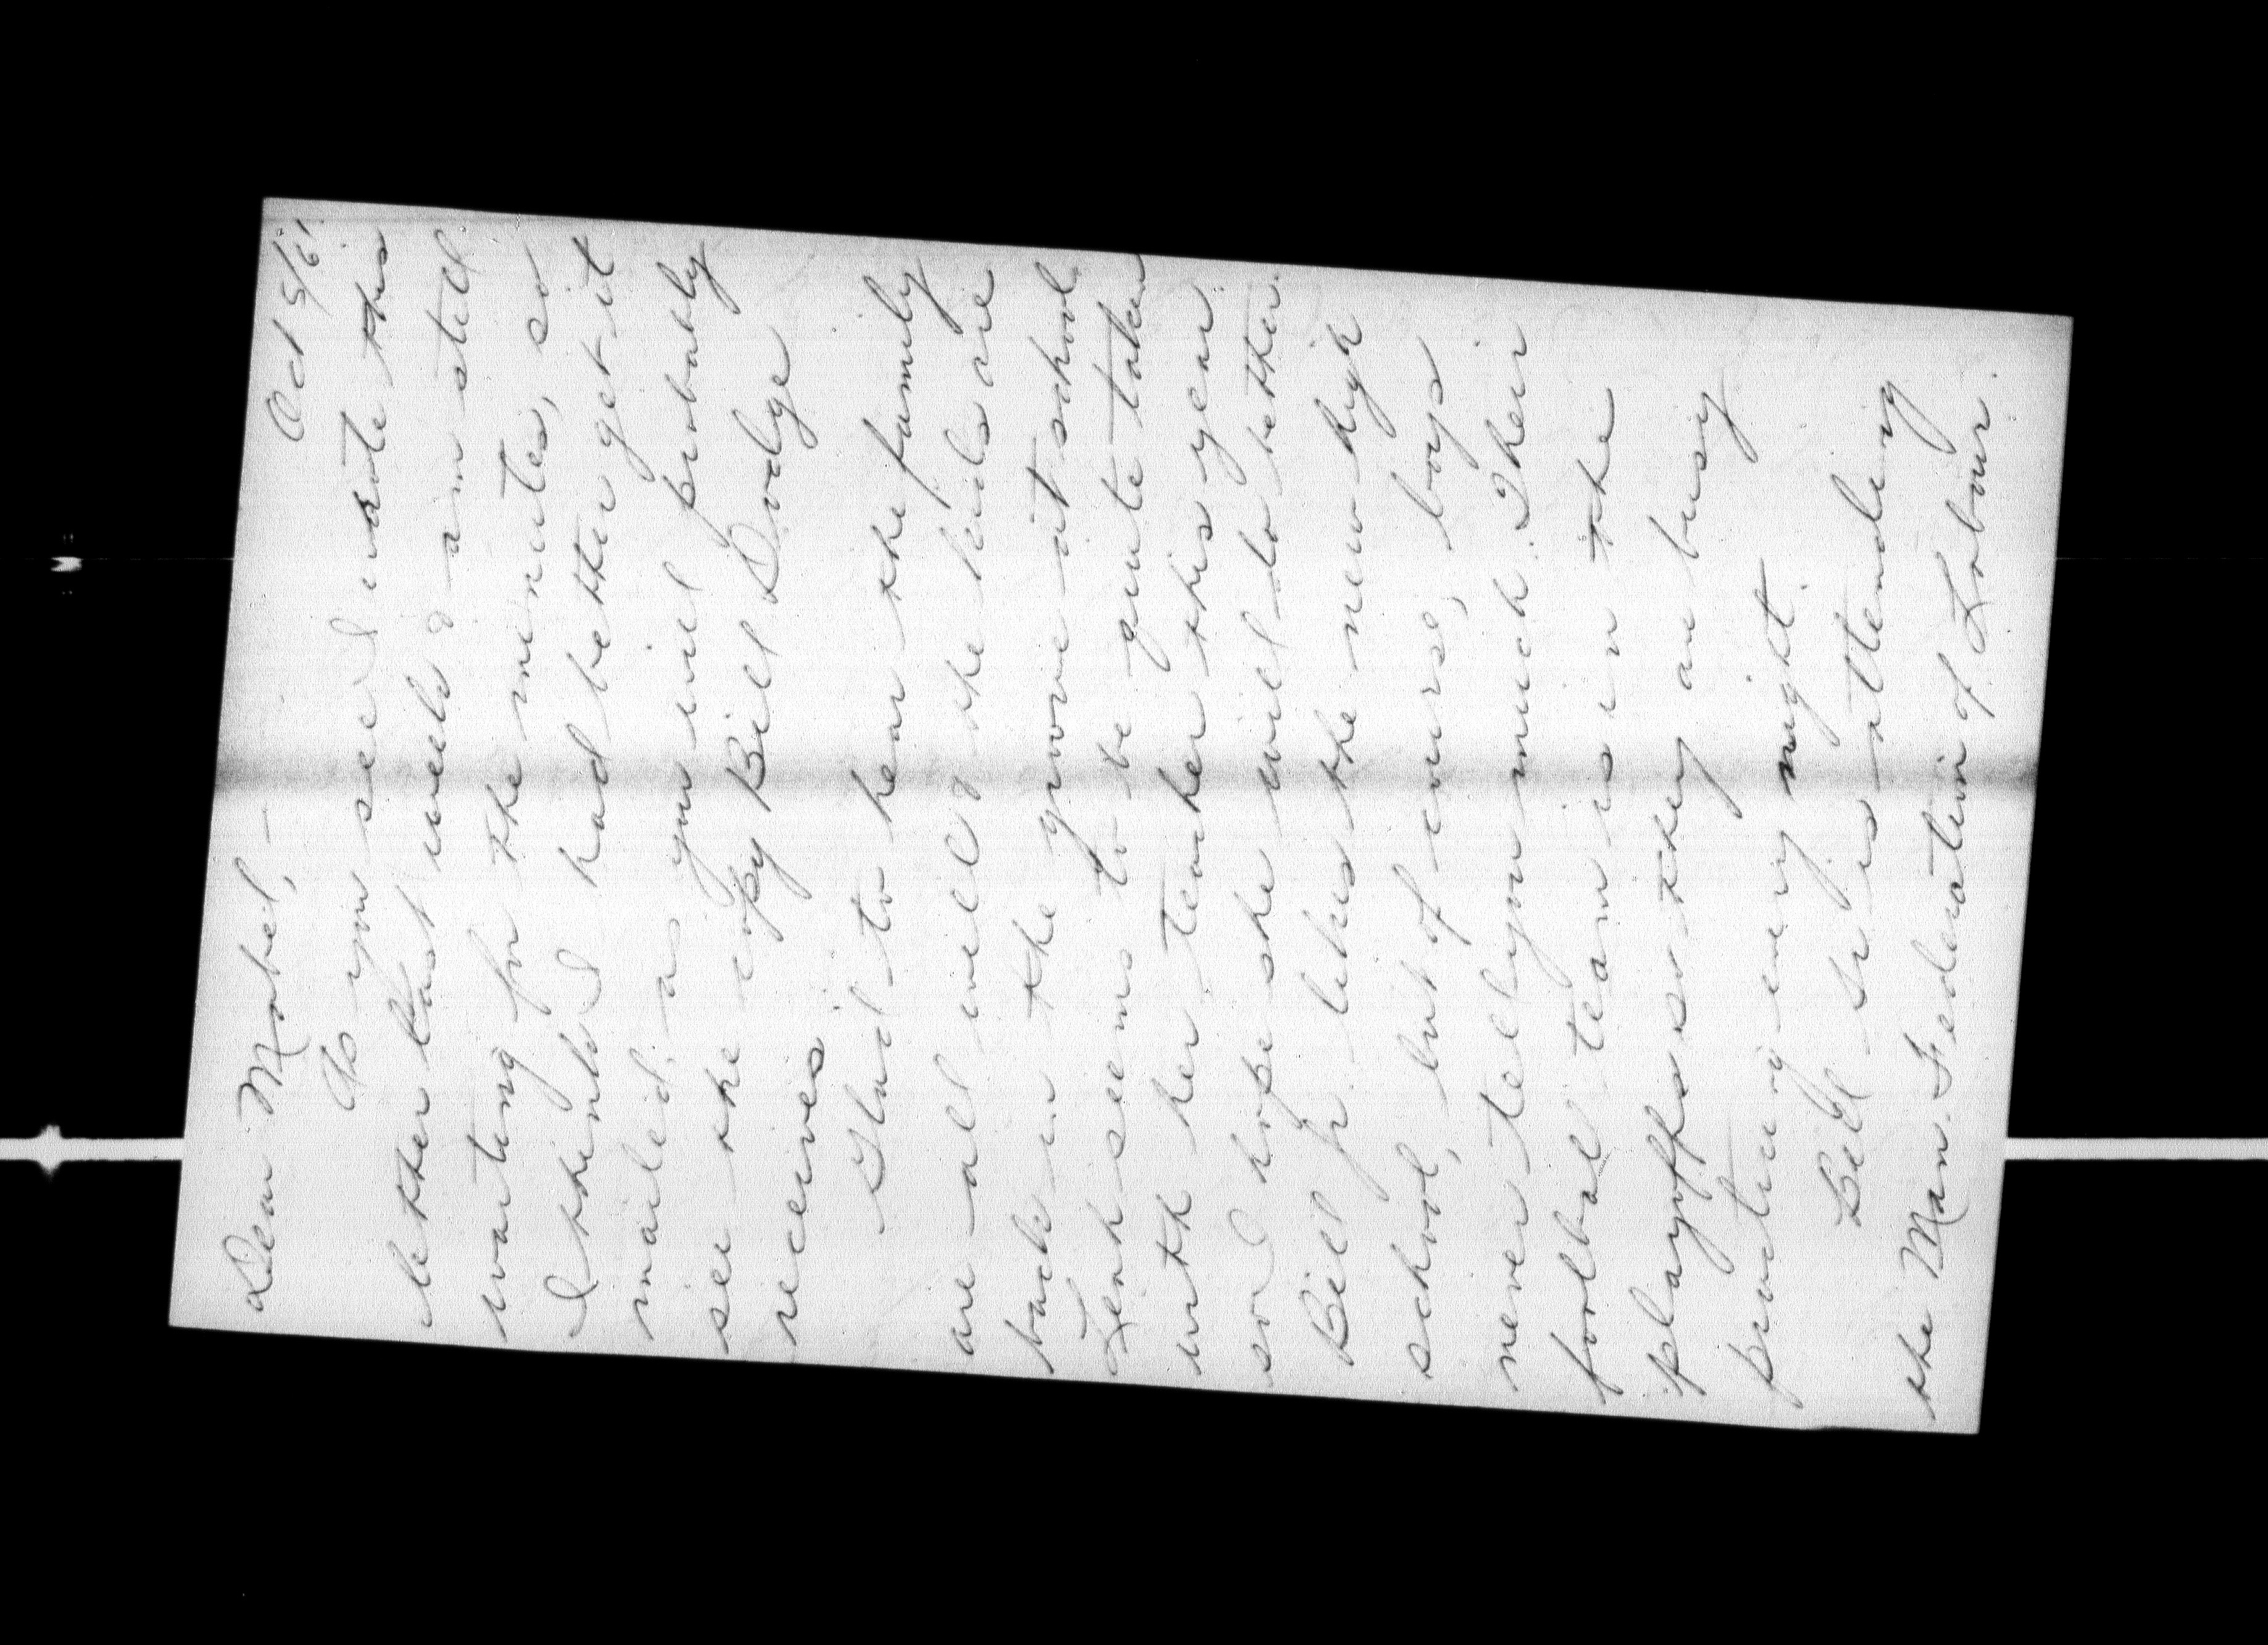 Oct 5/61
Dear Mabel, —
As you see I wrote this
letter last week & am still
waiting for the minutes, so
I think I had better get it
mailed, as you will probably
see the copy Bill Dodge
receives
Glad to hear the family
are all well & the kids are
back in the groove at school
seems to be quite taken
with her teacher this year
so I hope she will do better.
Bill Jr. likes the new high
school, but of course, boys
never tell you much. Their
football team is in the
playoffs so they are busy
practicing every night.
Bill Sr is attending
the Man. Federation of Labour.